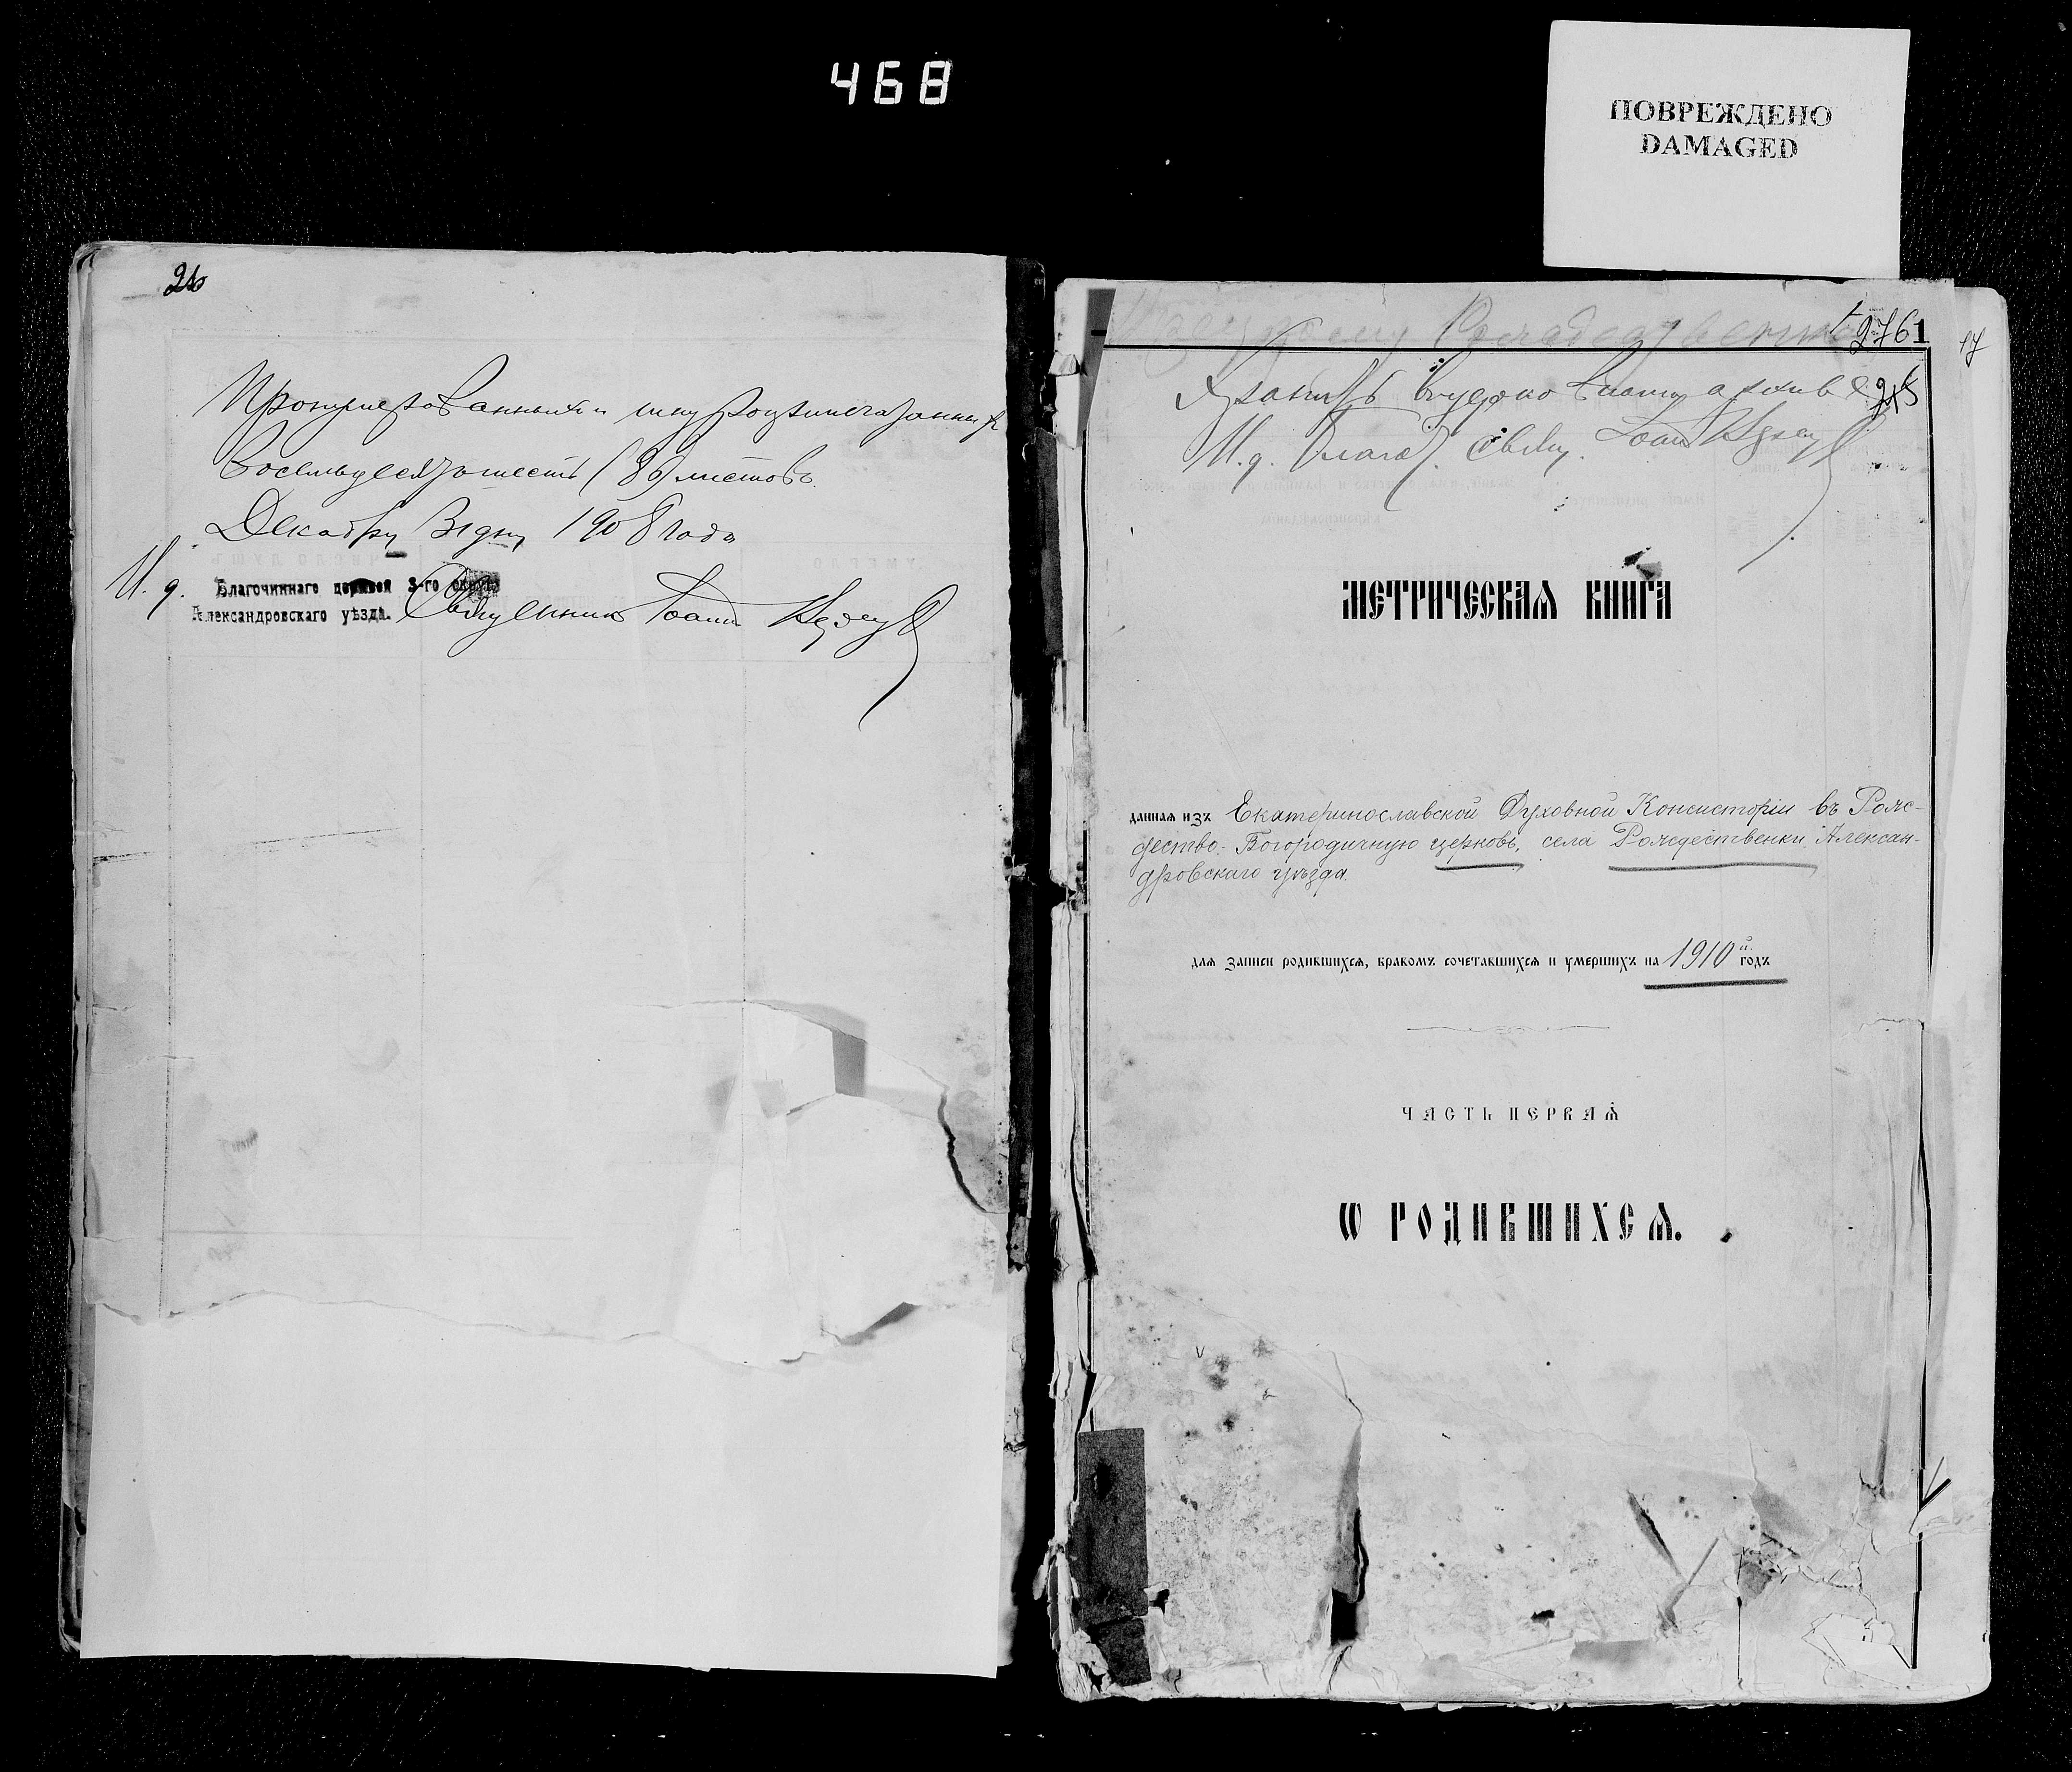 468
ПОВРЕЖДЕНО
DAMAGED
Пронумерованныхъ и шнуроприпечатанныхъ
восемьдесятъ шесть (86) листовъ.
Декабря 31 дня 1908 года
И. д. Благочиннаго церквей 3-го округа
Александровскаго уѣзда. Священникъ Іоаннъ
2761
17
Хранить въ архивѣ
И. д. Благоч. Свящ. Іоаннъ
МЕТРИЧЕСКАѦ КНИГА
даннаѧ изъ Екатеринославской Духовной Консисторіи въ Рож-
дество-Богородичную церковь, села Рождественки, Алексан-
дровскаго уѣзда.
длѧ записи родившихсѧ, бракомъ сочетавшихсѧ и умершихъ на 1910й годъ
ЧАСТЬ ПЕРВАѦ
Ѡ РОДИВШИХСѦ.